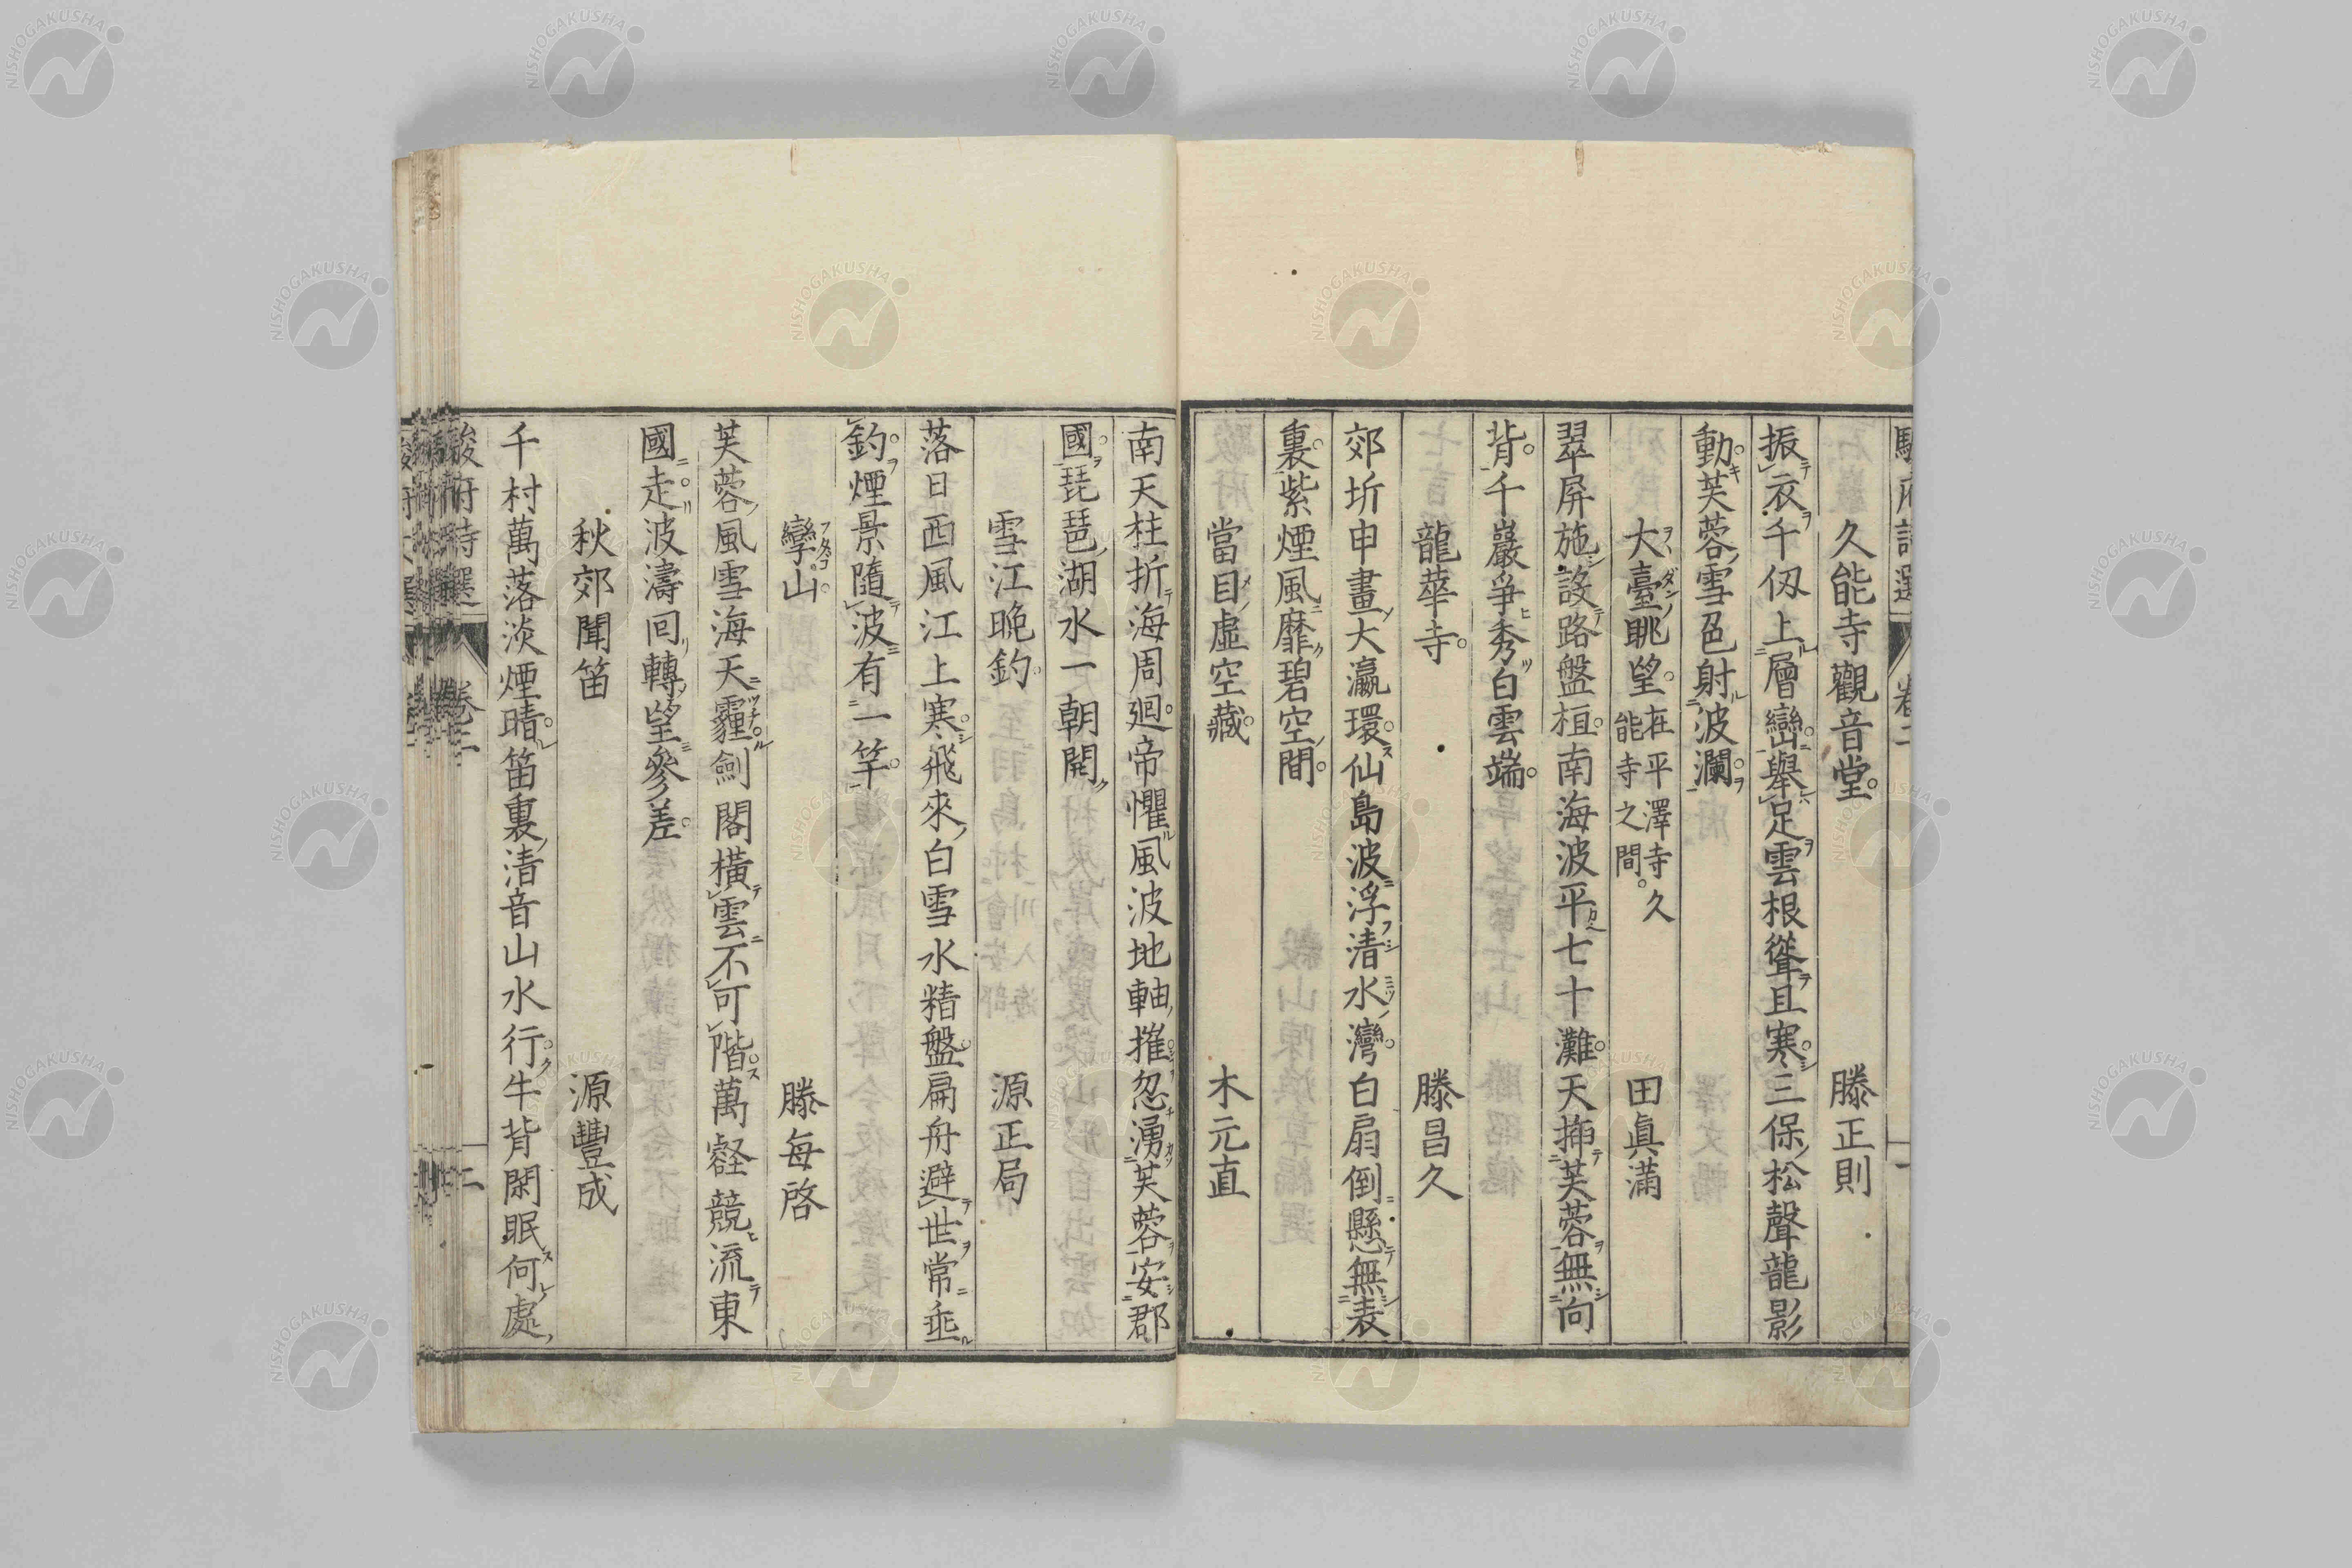 久能寺觀音堂。 滕正則
振衣千仭上層巒。舉足雲根聳且寒。三保松聲龍影
動。芙蓉雪色射波瀾。
大臺眺望。在平澤寺久能寺之間。 田眞滿
翠屏施設路盤桓。南海波平七十灘。天揷芙蓉無向
背。千巖爭秀白雲端。
龍華寺。 滕昌久
郊圻申畫大瀛環。仙島波浮清水灣。白扇倒懸無表
裏。紫煙風靡碧空間。
當目虛空藏。 木元直
南天柱折海周廻。帝懼風波地軸摧。忽湧芙蓉安郡
國。琵琶湖水一朝開
雪江晩釣。 源正局
落日西風江上寒。飛來白雪水精盤扁舟避世常垂
釣。煙景隨波有一竿。
孿山。 滕每啓
芙蓉風雪海天霾。劍閣橫雲不可階。萬壑競流東
國走。波濤回轉望參差。
秋郊聞笛 源豐成
千村萬落淡煙晴。笛裏清音山水行。牛背閑眠何處
駿府詩選 卷二 二
NISHOGAKUSHA